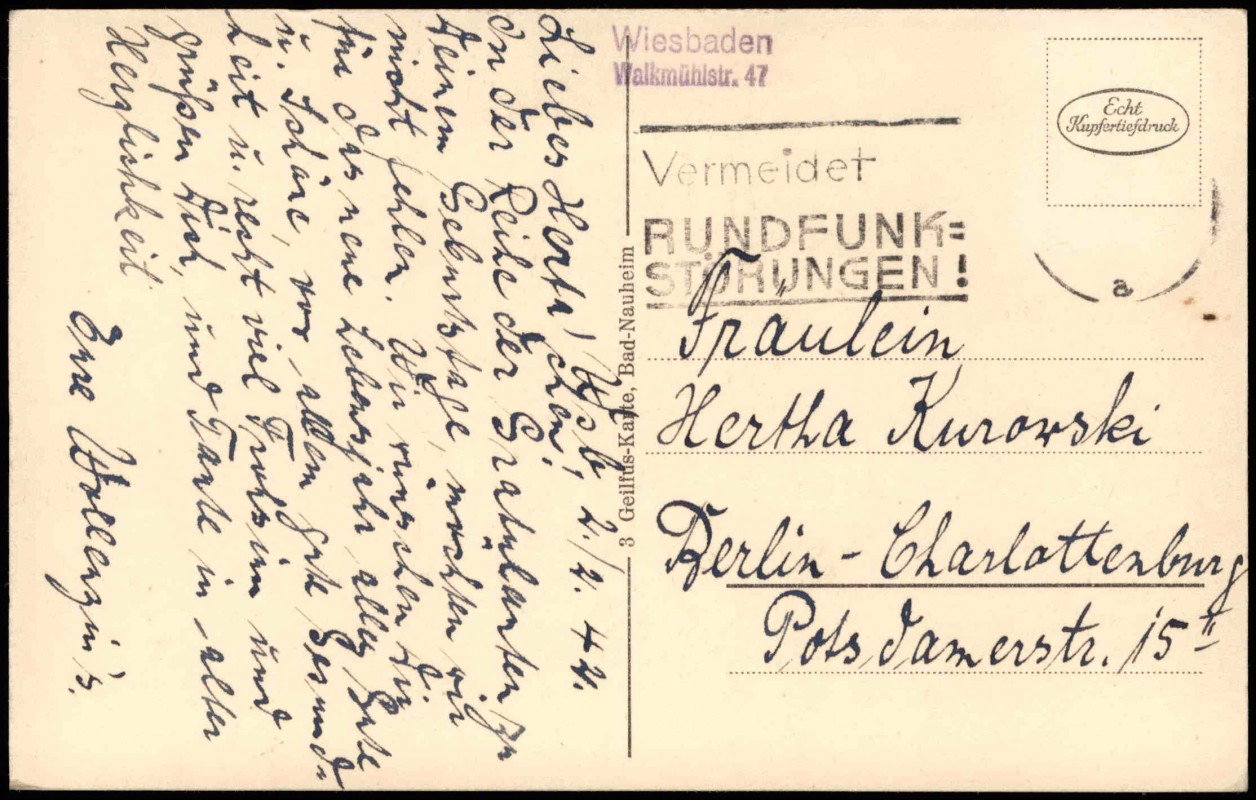 Wsb. 2./2. 42.
Liebes Herthachen!
In der Reihe der Gratulanten zu
Deinem Geburtstage, möchten wir
nicht fehlen. Wir wünschen Dir
für das neue Lebensjahr alles Gute
u. Schöne, vor allem gute Gesund-
heit u. recht viel Frohsinn und
grüßen Dich und Tante in alter
Herzlichkeit.
Eure
3 Geilfus-Karte, Bad-Nauheim
Wiesbaden
Walkmühlstr. 47
Vermeidet
RUNDFUNK=
STÖRUNGEN!
Echt
Kupfertiefdruck
a
Fräulein
Hertha Kurowski
Berlin-Charlottenburg
Potsdamerstr. 15